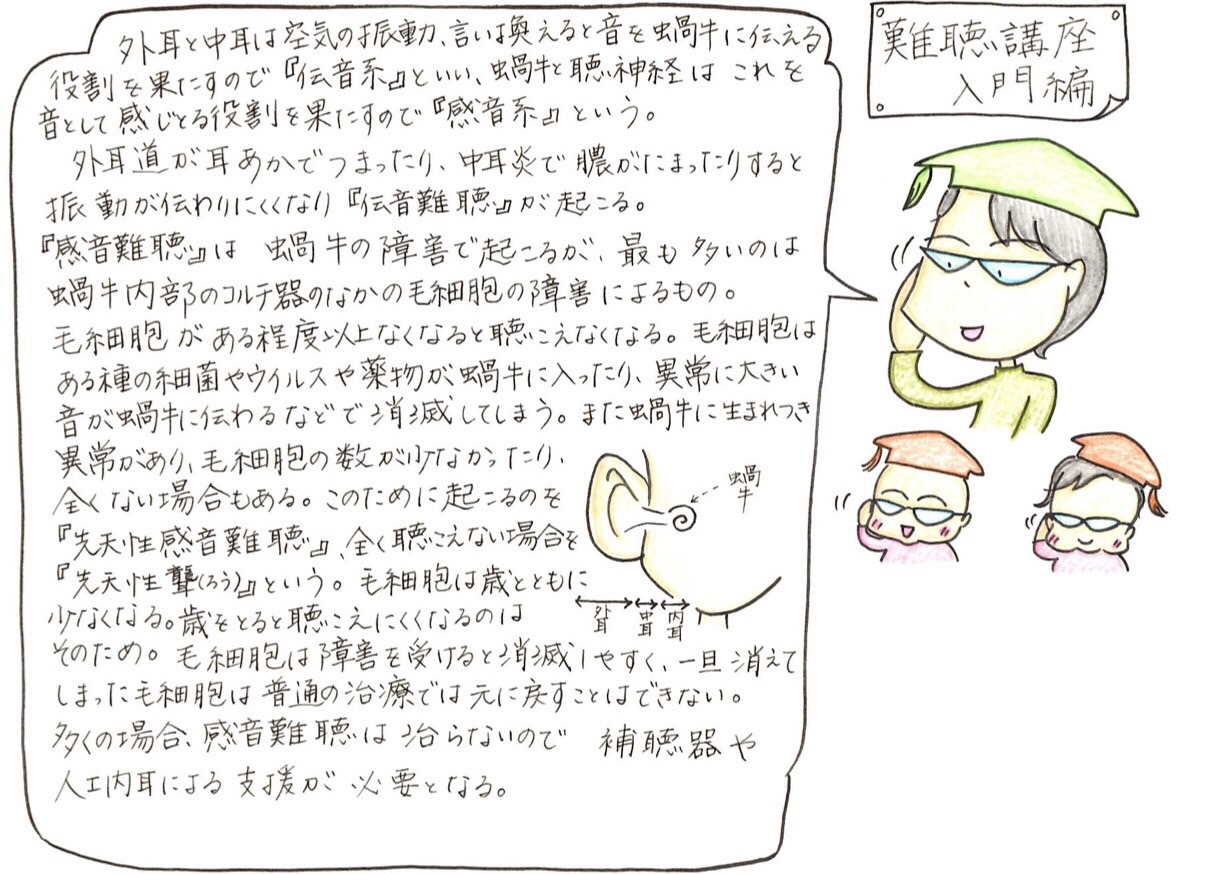 難聴講座
入門編
外耳と中耳は空気の振動、言い換えると音を蝸牛に伝える
役割を果たすので『伝音系』といい、蝸牛と聴神経は これを
音として感じとる役割を果たすので『感音系』という。
外耳道が耳あかでつまったり、中耳炎で膿がたまったりすると
振動が伝わりにくくなり『伝音難聴』が起こる。
『感音難聴』は 蝸牛の障害で起こるが、最も多いのは
蝸牛内部のコルチ器のなかの毛細胞の障害によるもの。
毛細胞がある程度以上なくなると聴こえなくなる。毛細胞は
ある種の細菌やウイルスや薬物が蝸牛に入ったり、異常に大きい
音が蝸牛に伝わるなどで消滅してしまう。また蝸牛に生まれつき
異常があり、毛細胞の数が少なかったり、
全くない場合もある。このために起こるのを
『先天性感音難聴』、全く聴こえない場合を
『先天性聾(ろう)』という。毛細胞は歳とともに
少なくなる。歳をとると聴こえにくくなるのは
そのため。毛細胞は障害を受けると消滅しやすく、一旦消えて
しまった毛細胞は普通の治療では元に戻すことはできない。
多くの場合、感音難聴は治らないので 補聴器や
人工内耳による支援が必要となる。
蝸
牛
外耳
中耳
内耳